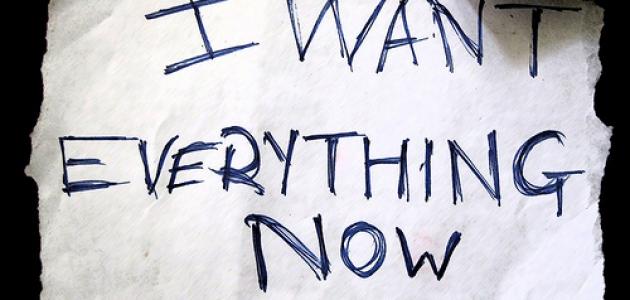 I WANT
EVERYTHING
NOW